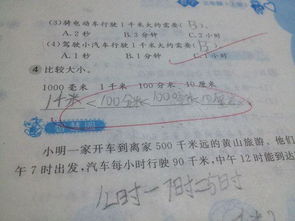 (3)骑电动车行驶1千米大约需要( B )。
A.2秒 B.3分钟 C.2小时
(4)驾驶小汽车行驶1千米大约需要(
A.2秒 B.1分钟 C.1小时
④ 比较大小。
1000毫米 1千米 100分米 10厘米
1千米<100分米<1000毫米<10厘米
小明一家开车到离家500千米远的黄山旅游，他们
午7时出发，汽车每小时行驶90千米，中午12时能到达
12时-7时=5时